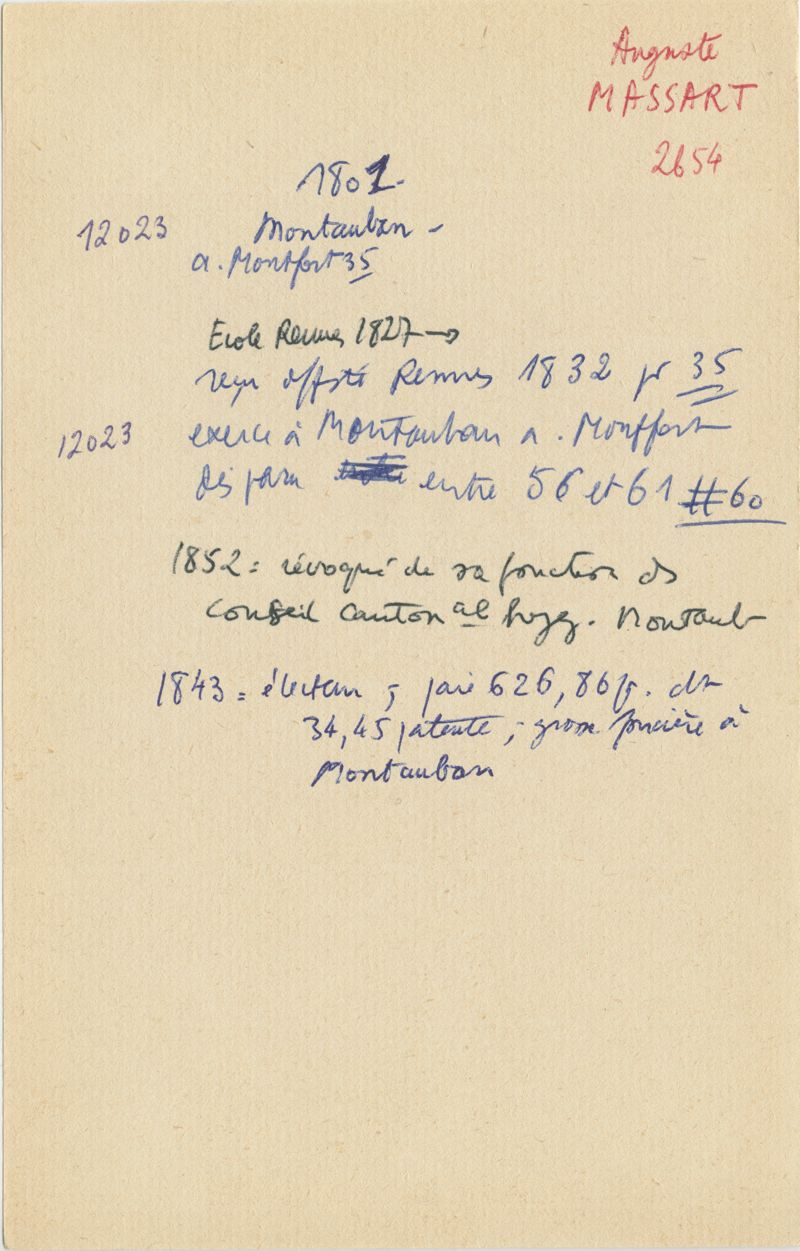 Auguste
MASSART
2654
1801.
12023 Montauban -
a. Montfort 35
Ecole Rennes 1827 →
reçu offsté Rennes 1832 pr 35
12023 exerce à Montauban a. Montfort
disparu entre 56 et 61 #60
1852 = révoqué de sa fonction ds
Conseil Cantonal hyg. Montaub
1843 = électeur ; paie 626,86 fr. dt
34,45 patente ; grosse foncière à
Montauban